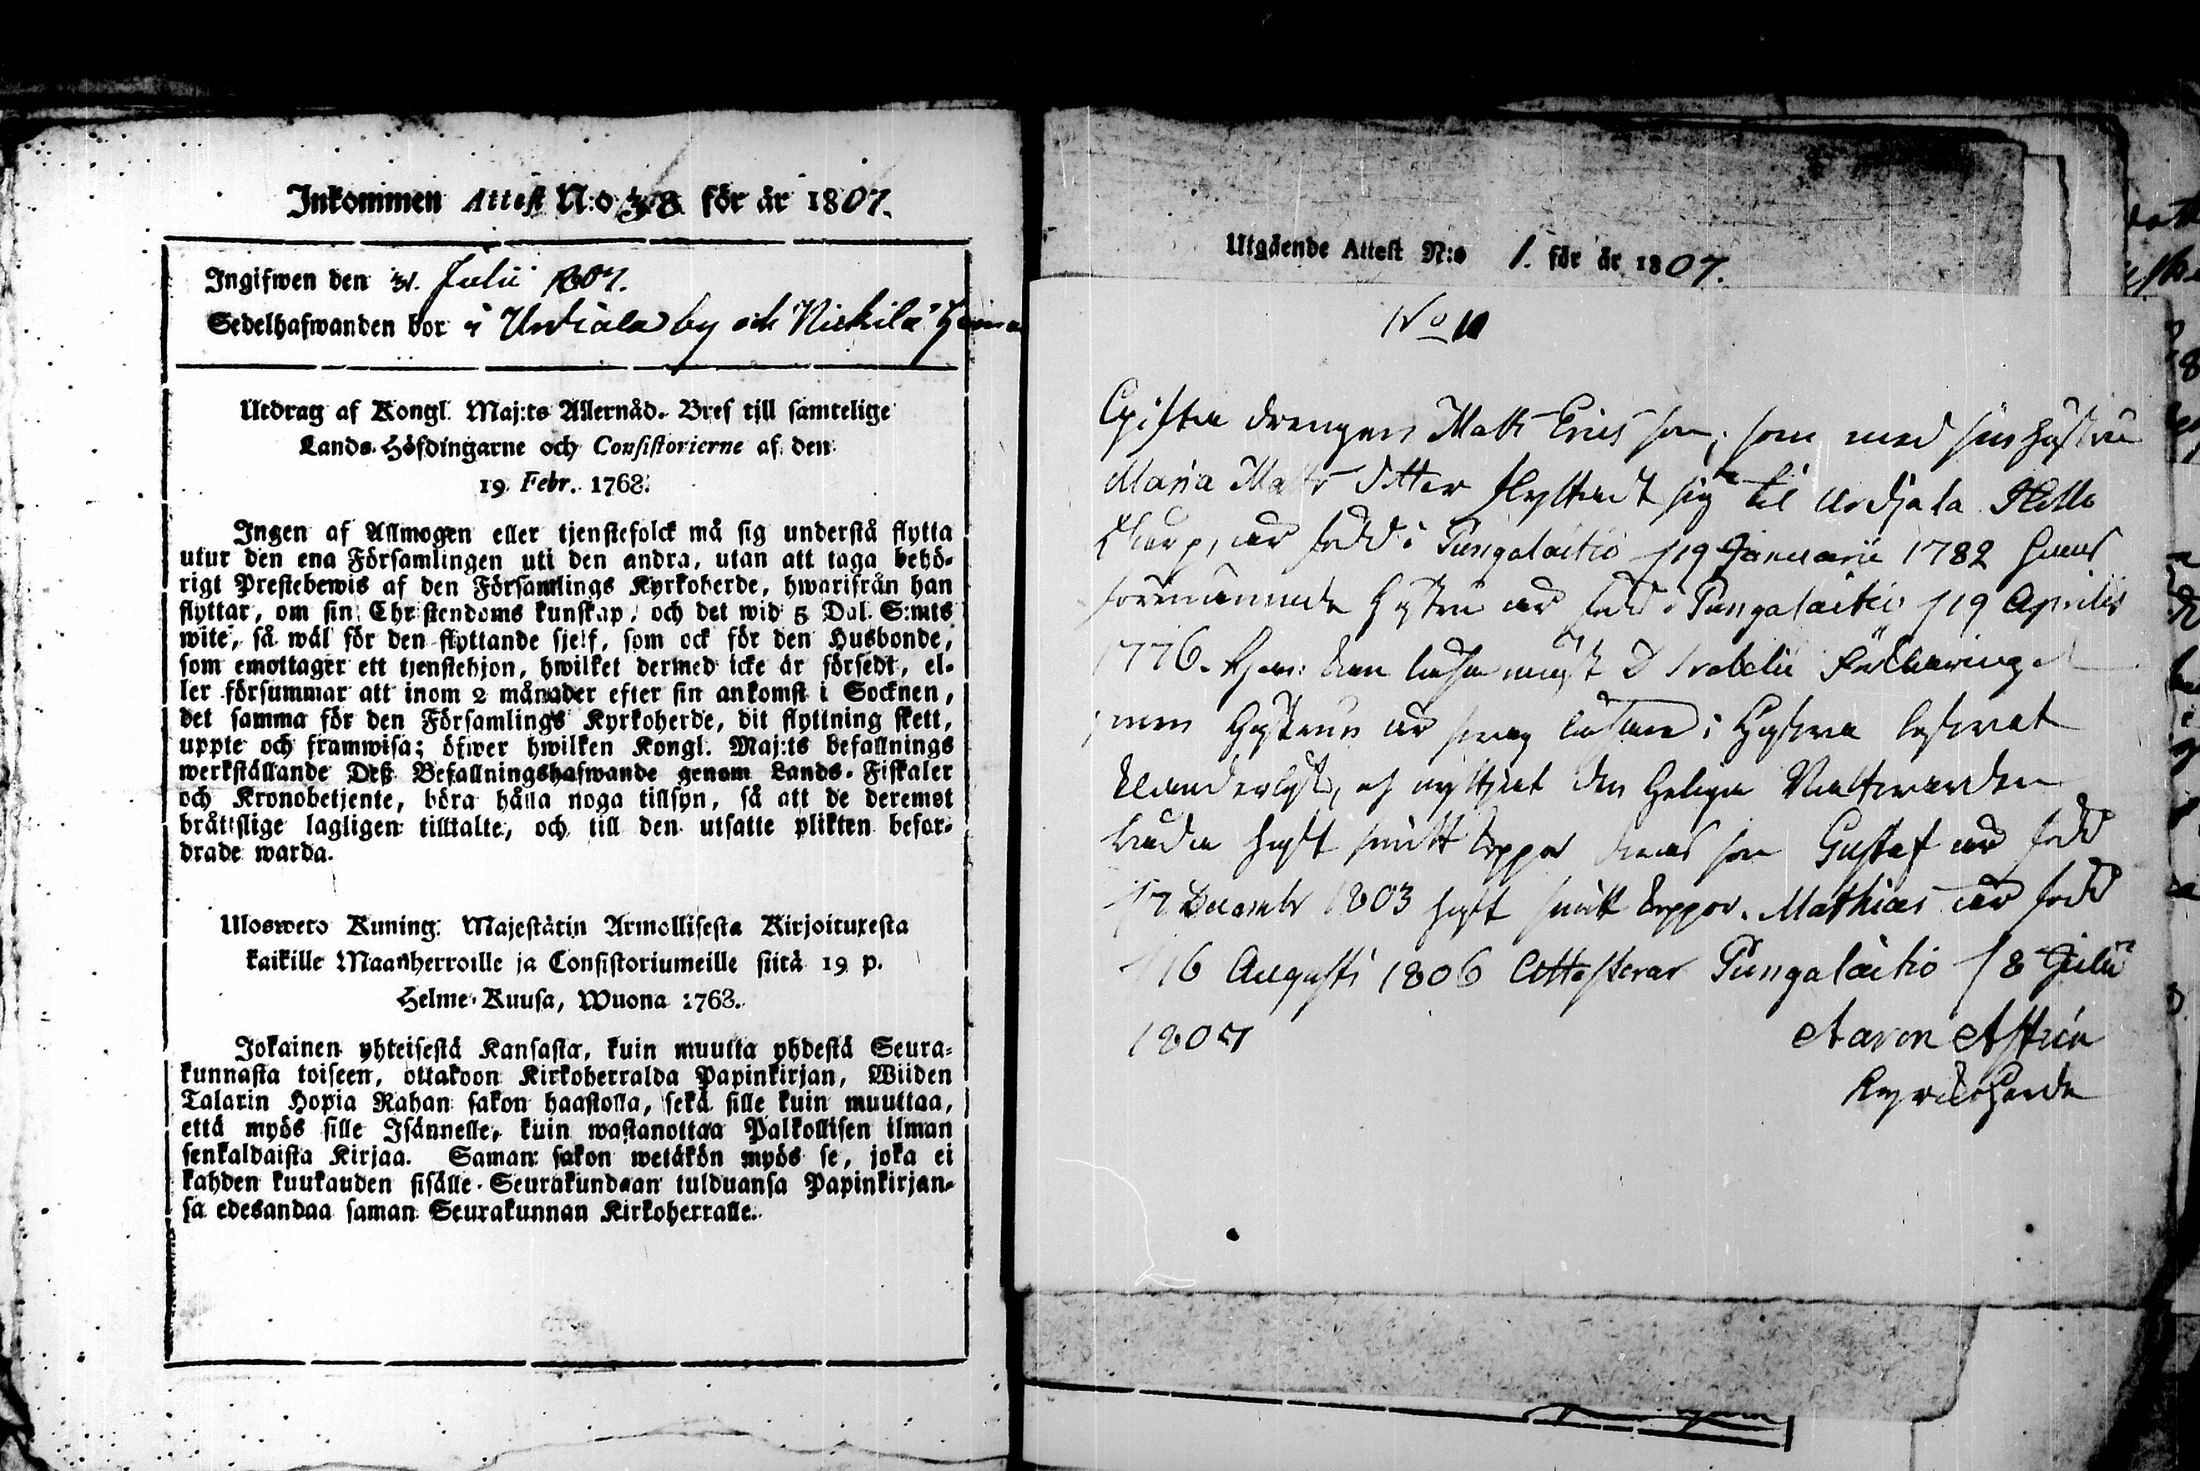 Inkommen Attest N:o 38 för år 1807.
Ingifwen den 31. Julii 1807.
Sedelhafwanden bor i Urdiala by och Nickilä
Utdrag af Kongl. Maj:ts Allernåd. Bref till samtelige
Lands-Höfdingarne och Consistorierne af den
19 Febr. 1768.
Ingen af Allmogen eller tjenstefolck må sig understå flytta
utur den ena Församlingen uti den andra, utan att taga behö-
rigt Prestebewis af den Församlings Kyrkoherde, hwarifrån han
flyttar, om sin Christendoms kunskap, och det wid 5 Dal. S:mts
wite, så wäl för den flyttande sjelf, som ock för den Husbonde,
som emottager ett tjenstehjon, hwilket dermed icke är försedt, el-
ler försummar att inom 2 månader efter sin ankomst i Socknen,
det samma för den Församlings Kyrkoherde, dit flyttning skett,
uppte och framwisa; öfwer hwilken Kongl. Maj:ts befallnings
werkställande Deß Befallningshafwande genom Lands-Fiskaler
och Kronobetjente, böra hålla noga tillsyn, så att de deremot
bråttslige lagligen tilltalte, och till den utsatte plikten befor-
drade warda.
Ulosweto Kuning. Majestätin Armollisesta Kirjoituxesta
kaikille Maanherroille ja Consistoriumeille siitä 19 p.
Helme-Kuusa, Wuona 1763.
Jokainen yhteisestä Kansasta, kuin muutta yhdestä Seura-
kunnasta toiseen, ottakoon Kirkoherralda Papinkirjan, Wiiden
Talarin Hopia Rahan sakon haastolla, sekä sille kuin muuttaa,
että myös sille Isännelle, kuin wastanottaa Palkollisen ilman
senkaldaista Kirjaa. Saman sakon wetäkön myös se, joka ei
kahden kuukauden sisälle Seurakundaan tulduansa Papinkirjan-
sa edesandaa saman Seurakunnan Kirkoherralle.
Utgående Attest N:o 1. för år 1807.
No 10
Gifta drengen Matts Ericsson, som med sin hustru
Maria Matts dotter flyttadt sig til Urdjala
är född i Pungalaitio d 19 Januarii 1782 hans
förenämnde hustru är född i Pungalaitio d 19 Aprilis
1776. Svebelii Förklaring
men hustrun är svag i
och nyttjat den Heliga Nattvarden
haft koppor deras son Gustaf är född
d 17 Decembr 1803 haft koppor. Mathias är född
d 16 Augusti 1806 Attesterar Pungalaitio d 8 Julii
1807
Aaron
Kyrkoherde